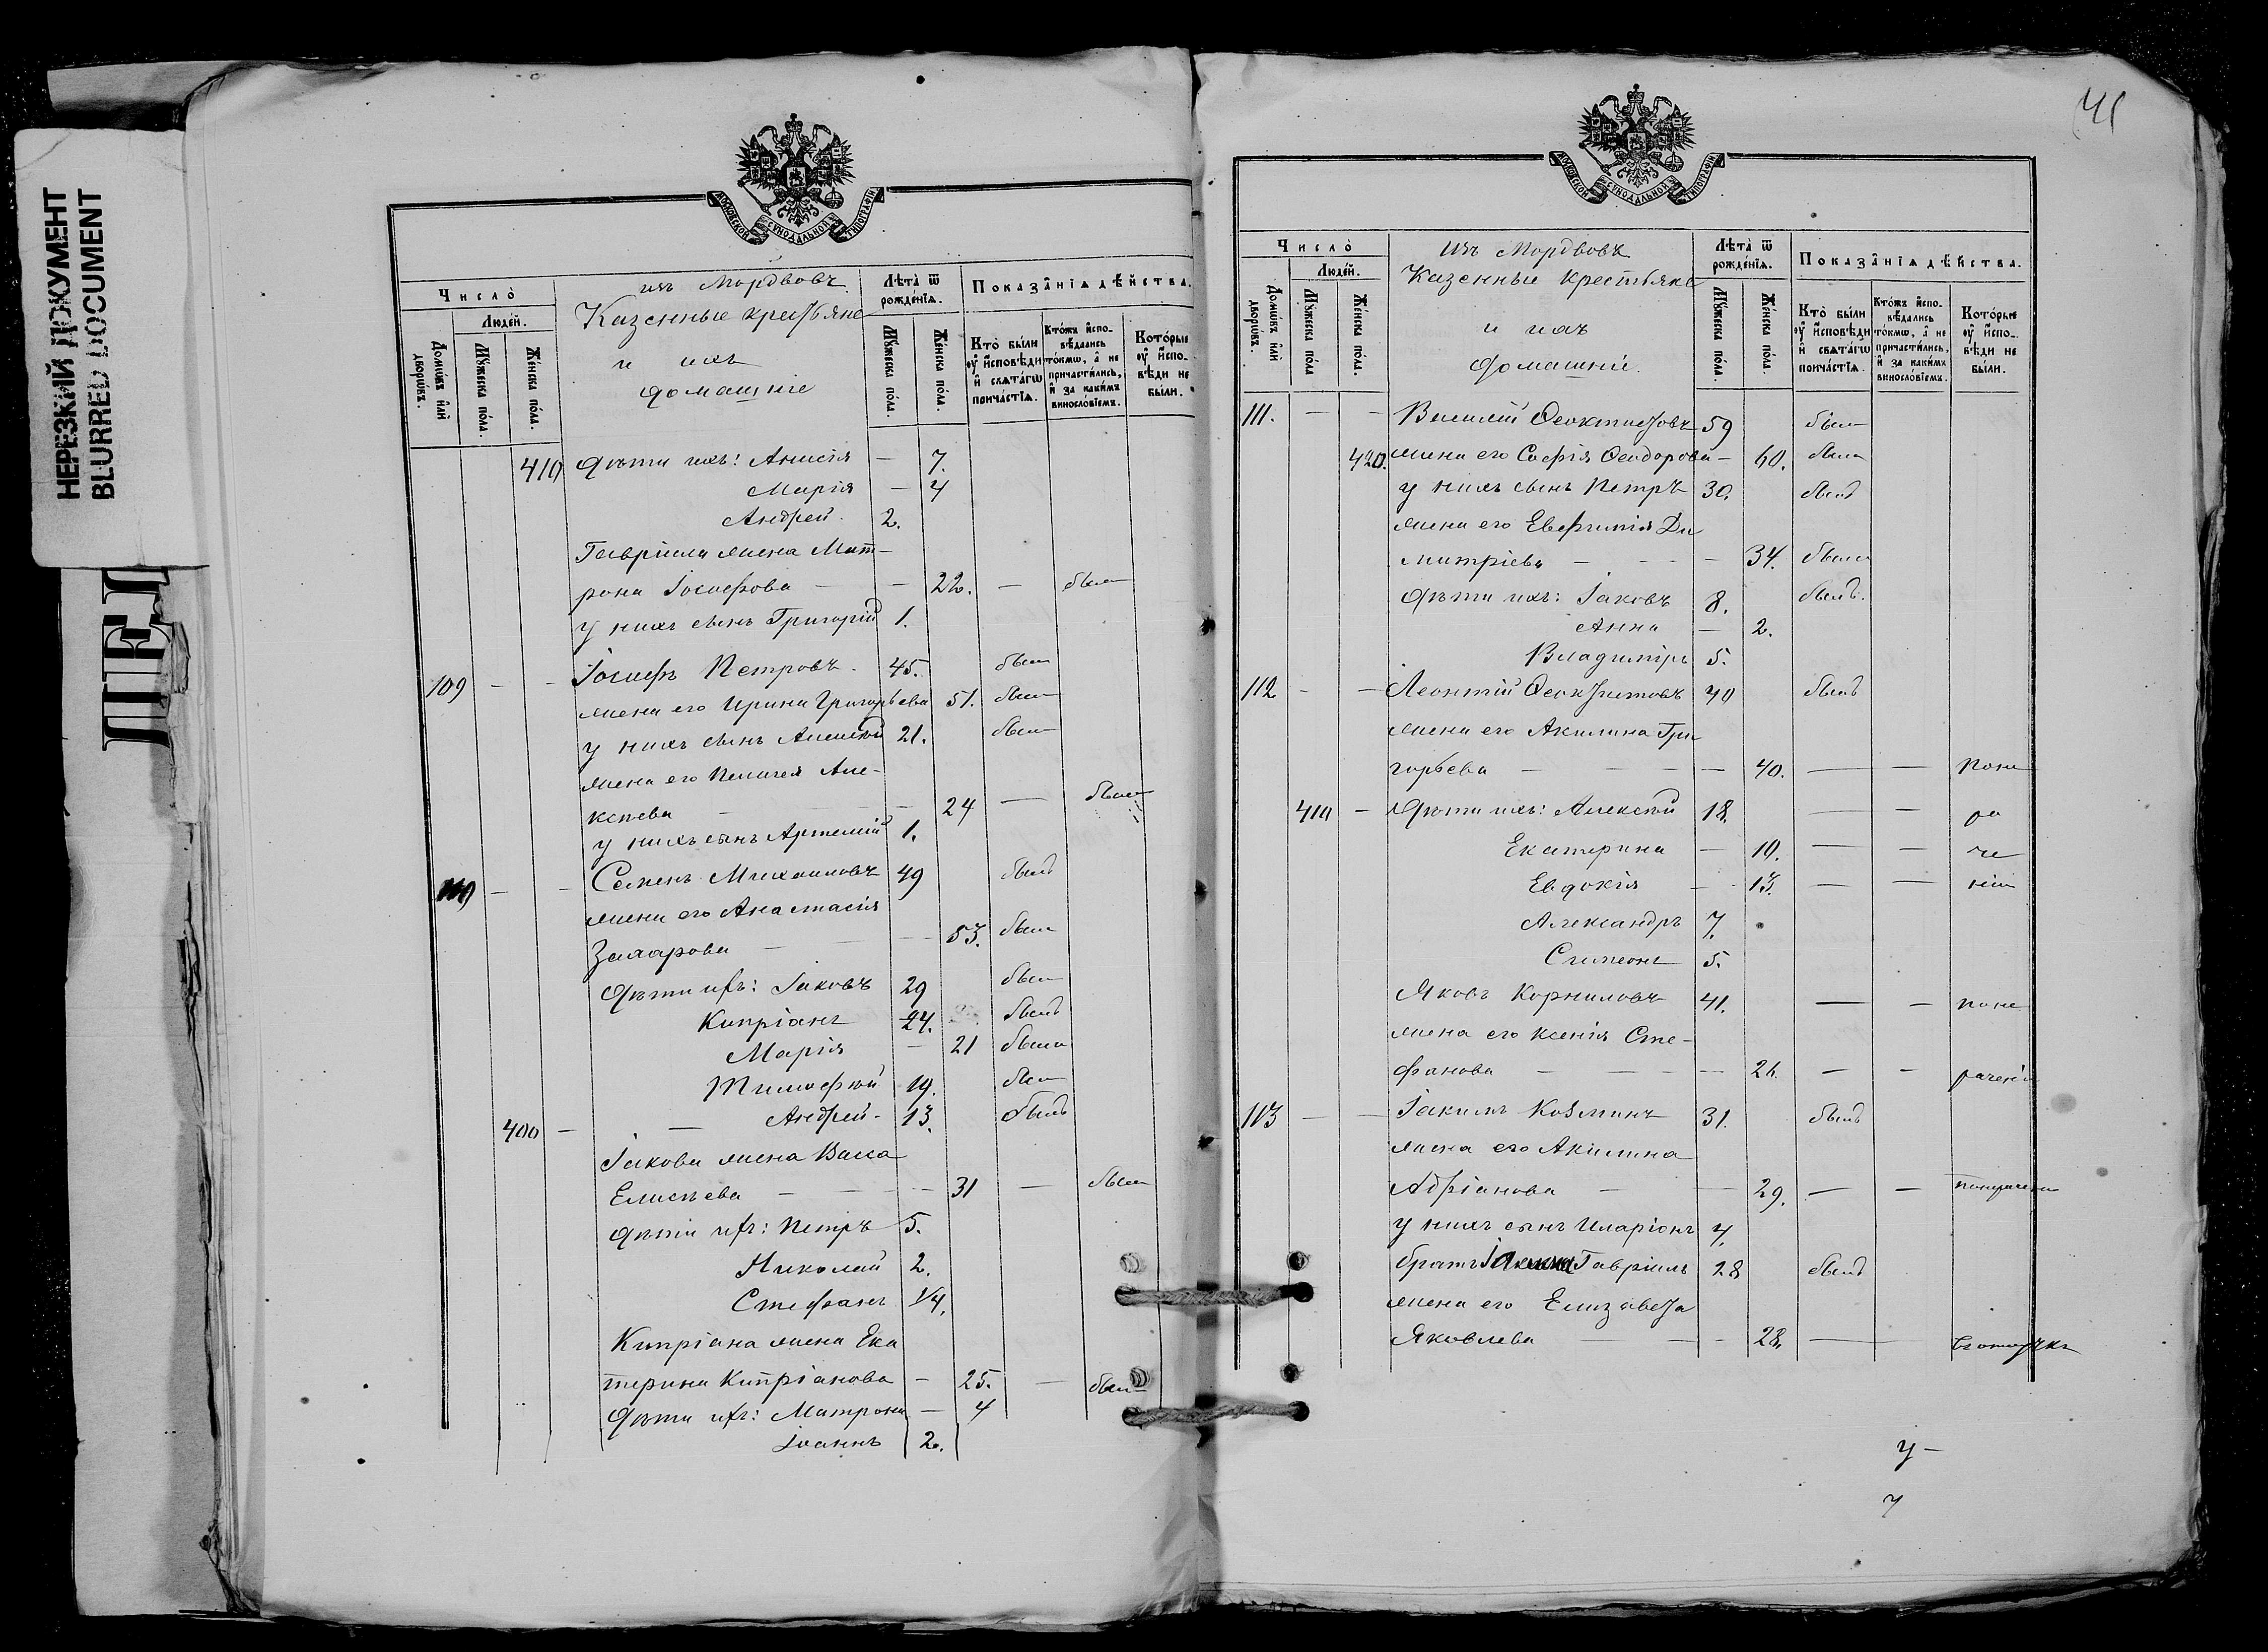 НЕРЕЗКИЙ ДОКУМЕНТ
BLURRED DOCUMENT
МОСКОВСКОЙ СѴНОДАЛЬНОЙ ТИПОГРАФІИ
Число̀
Людей.
Домѡ́въ и҆лѝ дворѡ́въ.
Мꙋ́жеска по́ла.
Же́нска по́ла.
изъ Мордвовъ
Казенные крестьяне
и ихъ
домашніе
Лѣта̀ ѿ рожде́нїѧ.
Мꙋ́жеска по́ла.
Же́нска по́ла.
Показа̑нїѧ дѣ́йства.
Кто̀ бы́ли оу҆ и҆́сповѣди и҆ свѧта́гѡ прича́стїѧ.
Кто́жъ и҆спо-вѣ́дались то́кмѡ, а҆ не причасти́лись, и҆ за каки́мъ виносло́вїемъ.
Кото́рые оу҆ и҆спо-вѣди не бы́ли.
410 дѣти ихъ: Анисія — 7.
Марія — 4
Андрей. 2.
Гавріила жена Мат-
рона Іосифова — — 22. — была
у нихъ сынъ Григорій 1.
109 — — Іосифъ Петровъ. 45. былъ
жена его Ирина Григорьева 51. была
у нихъ сынъ Алексѣй 21. былъ
жена его Пелагея Але-
ксѣева — — 24 — была
у нихъ сынъ Артемій 1.
110 — — Семенъ Михаиловъ 49 былъ
жена его Анастасія
Захарова — — 53. была
Дѣти ихъ: Іаковъ 29 былъ
Кипріанъ 24. былъ
Марія — 21 была
Тимофѣй 19. былъ
400 — — Андрей. 13. былъ
Іакова жена Васса
Елисѣева — — — 31 — была
дѣти ихъ: Петръ 5.
Николай 2.
Стефанъ 1/4.
Кипріана жена Ека
терина Кипріанова — 25. — была
Дѣти ихъ: Матрона — 4
Іоаннъ 2.
41
МОСКОВСКОЙ СѴНОДАЛЬНОЙ ТИПОГРАФІИ
Число̀
Людей.
Домѡ́въ и҆лѝ дворѡ́въ.
Мꙋ́жеска по́ла.
Же́нска по́ла.
Изъ Мордвовъ
Казенные крестьяне
и ихъ
домашніи.
Лѣта̀ ѿ рожде́нїѧ.
Мꙋ́жеска по́ла.
Же́нска по́ла.
Показа̑нїѧ дѣ́йства.
Кто̀ бы́ли оу҆ и҆́сповѣди и҆ свѧта́гѡ прича́стїѧ.
Кто́жъ и҆спо-вѣ́дались то́кмѡ, а҆ не причасти́лись, и҆ за каки́мъ виносло́вїемъ.
Кото́рые оу҆ и҆спо-вѣди не бы́ли.
111. — — Василій Ѳеоктистовъ 59 былъ
420. жена его Софія Ѳеодорова — 60. была
у нихъ сынъ Петръ 30. былъ
жена его Евфимія Ди
митріева — - - — 34. была
Дѣти ихъ: Іаковъ 8. былъ.
Анна — 2.
Владиміръ 5.
112 — — Леонтій Ѳеоктистовъ 40 былъ
жена его Акилина Гри
горьева — — — — 40. — — по не
410 — Дѣти ихъ: Алексѣй 18. — — ра
Екатерина — 10. — — че
Евдокія — 13. — — нію
Александръ 7.
Симеонъ 5.
Яковъ Корниловъ 41. — — по не
жена его Ксенія Сте-
фанова — — — — 26. — — раченію
113 — — Іакимъ Козминъ 31. былъ
жена его Акилина
Адріанова — — 29. — —
у нихъ сынъ Иларіонъ 4.
братъ Іакима Гавріилъ 28 былъ
жена его Елизавета
Яковлева — — - 28. — въ отлучкѣ